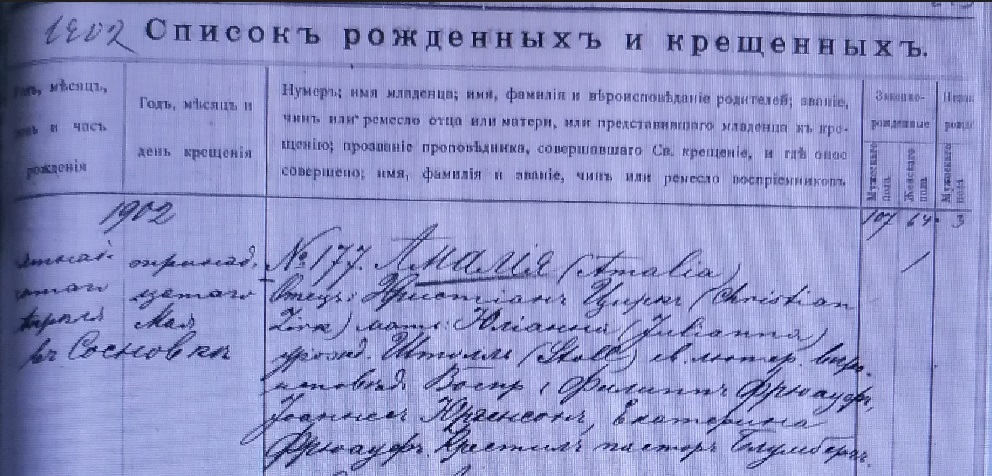 1902 Списокъ рожденныхъ и крещенныхъ.
мѣсяцъ,
и часъ
рожденія
Годъ, мѣсяцъ и
день крещенія
Нумеръ; имя младенца; имя, фамилія и вѣроисповѣданіе родителей; званіе,
чинъ или ремесло отца или матери, или представившаго младенца къ кре-
щенію; прозваніе проповѣдника, совершавшаго Св. крещеніе, и гдѣ оное
совершено; имя, фамилія и званіе, чинъ или ремесло воспріемниковъ
Законно-
рожденные
Мужескаго пола
Женскаго пола
Мужескаго пола
1902
107 64 3
№ 177. Амалія (Amalia)
Отецъ: Христіанъ Циркъ (Christian
Zirk) мать: Юліанна (Julianna)
урожд. Штолль (Stoll) ев. лютер. вѣро-
исповѣд. Воспр: Филиппъ Фрюауфъ,
Іоаннесъ Юргенсонъ, Екатерина
Фрюауфъ. Крестилъ пасторъ Блумбергъ.
тринад-
цатаго
Мая
въ Сосновкѣ